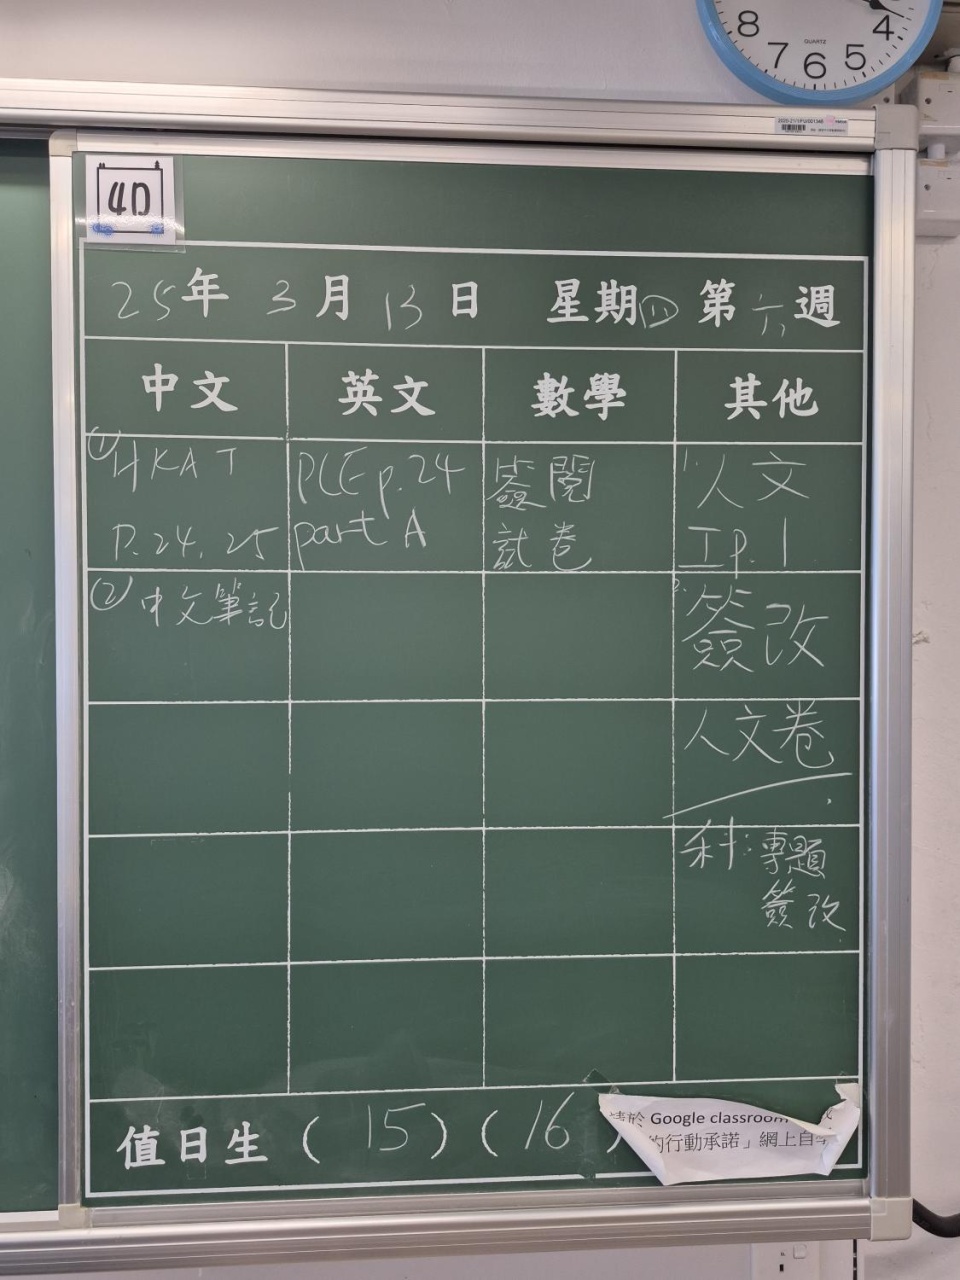 8 7 6 5 4
QUARTZ
4D
25年 3月 13日 星期四 第六週
中文 英文 數學 其他
① HKAT
P.24, 25
② 中文筆記
PLE p.24
part A
簽閱
試卷
1. 人文
I p.1
2. 簽改
人文卷
科：專題
簽改
值日生 ( 15 ) ( 16 )
請於 Google classroom
的行動承諾」網上自學